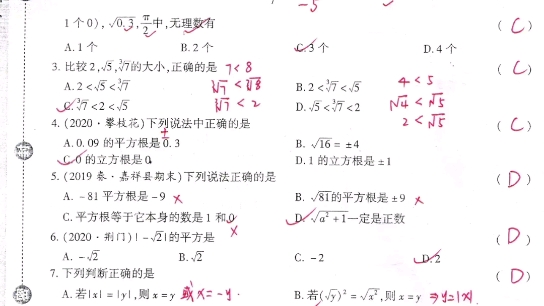 -5
1 个 0), √0.3, π/2 中,无理数有 ( C )
A. 1 个 B. 2 个 C. 3 个 D. 4 个
3. 比较 2,√5,∛7的大小,正确的是 7<8 ( C )
A. 2<√5<∛7 ∛7<∛8 B. 2<∛7<√5 4<5
C. ∛7<2<√5 ∛7<2 D. √5<∛7<2 √4<√5
4. (2020·攀枝花)下列说法中正确的是 2<√5 ( C )
A. 0.09 的平方根是±0.3 B. √16 = ±4
C. 0 的立方根是 0 D. 1 的立方根是 ±1
5. (2019 秦·嘉祥县期末)下列说法正确的是 ( D )
A. -81 平方根是 -9 × B. √81的平方根是 ±9 ×
C. 平方根等于它本身的数是 1 和 0 × D. √a²+1一定是正数
6. (2020·荆门)|-√2|的平方是 ( D )
A. -√2 B. √2 C. -2 D. 2
7. 下列判断正确的是 ( D )
A. 若|x|=|y|,则 x=y 或x=-y. B. 若(√y)²=√x²,则 x=y ⇒y=|x|